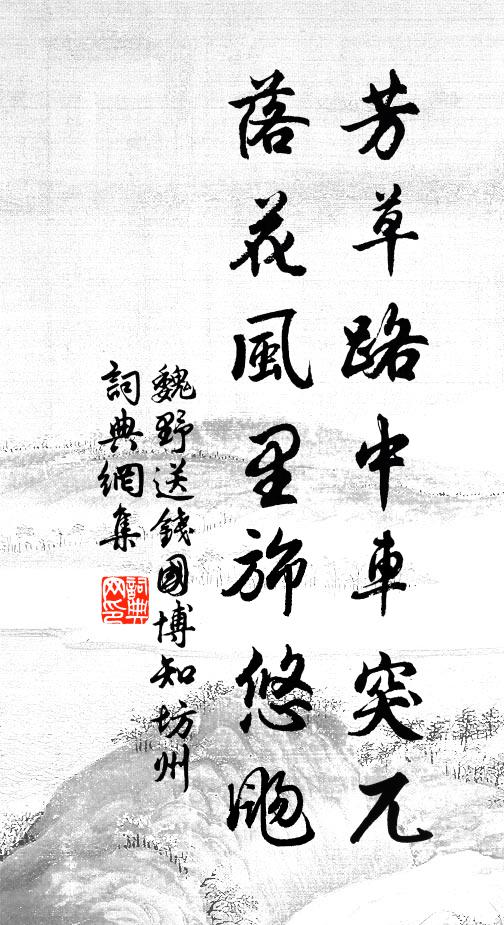 芳草路中車突兀
落花風里旆悠颺
魏野送錢國博知坊州
詞典網集
詞典
网印